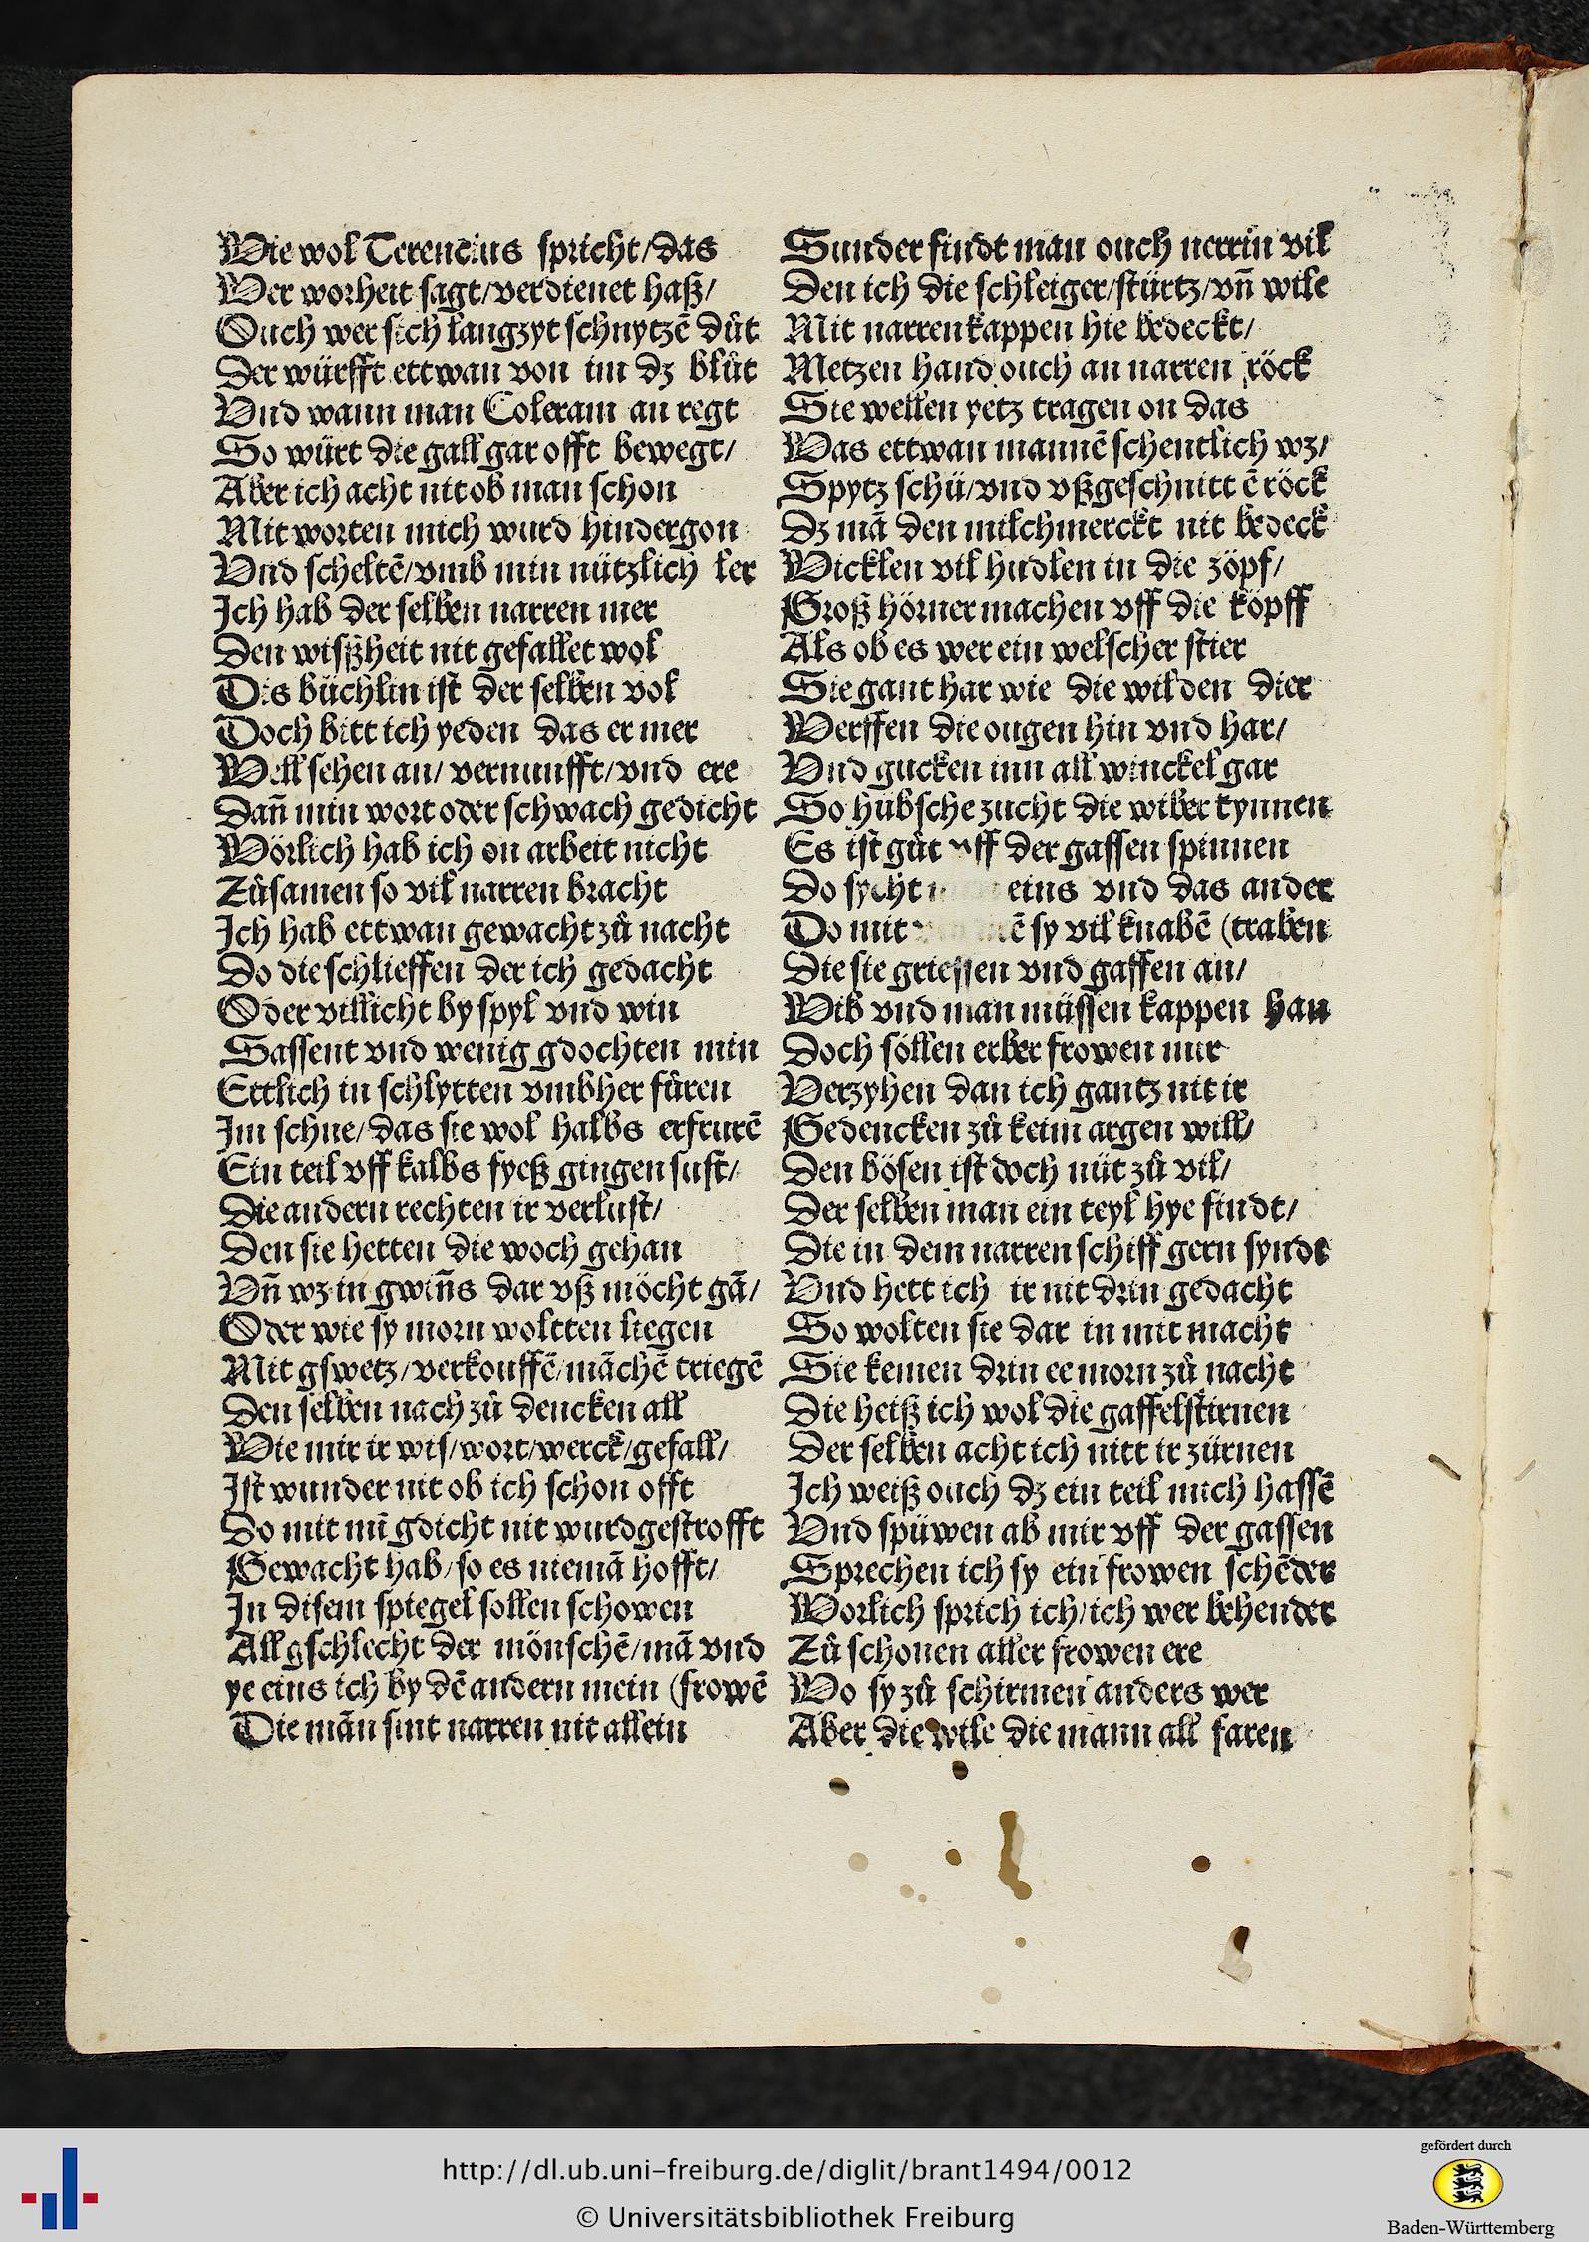 Wie wol Terencius spricht/das
Wer worheit sagt/verdienet haß/
Ouch wer sich langzyt schnytzē důt
Der würfft ettwan von im dz blůt
Vnd wann man Coleram an regt
So würt die gall gar offt bewegt/
Aber ich acht nit ob man schon
Mit worten mich wurd hindergon
Vnd scheltē/vmb min nützlich ler
Ich hab der selben narren mer
Den wißheit nit gefallet wol
Dis büchlin ist der selben vol
Doch bitt ich yeden das er mer
Well sehen an/ vernunfft/vnd ere
Dañ min wort oder schwach gedicht
Wörlich hab ich on arbeit nicht
Zůsamen so vil narren bracht
Ich hab ettwan gewacht zů nacht
Do die schlieffen der ich gedacht
Oder villicht by spyl vnd win
Sassent vnd wenig gdochten min
Ettlich in schlytten vmbher fůren
Im schne/das sie wol halbs erfrurē
Ein teil vff kalbs fyeß gingen sust/
Die andern rechten ir verlust/
Den sie hetten die woch gehan
Vñ wz in gwiñs dar vß möcht gā/
Oder wie sy morn woltten liegen
Mit gswetz/verkouffē/māchē triegē
Den selben nach zů dencken all
Wie mir ir wis/wort/werck/gefall/
Ist wunder nit ob ich schon offt
Do mit mī gdicht nit wurd gestrofft
Gewacht hab/so es niemā hofft/
In disem spiegel sollen schowen
All gschlecht der mönschē/mā vnd
ye eins ich by dē andern mein (frowē
Die mān sint narren nit allein
Sunder findt man ouch nerrin vil
Den ich die schleiger/stürtz/vñ wile
Mit narrenkappen hie bedeckt/
Metzen hand ouch an narren röck
Sie wellen yetz tragen on das
Was ettwan mannē schentlich wz/
Spytz schü/vnd vßgeschnittē röck
Dz mā den milchmerckt nit bedeck
Wicklen vil hudlen in die zöpf/
Groß hörner machen vff die köpff
Als ob es wer ein welscher stier
Sie gant har wie die wilden dier
Werffen die ougen hin vnd har/
Vnd gucken inn all winckel gar
So hübsche zucht die wiber kynnen
Es ist gůt vff der gassen spinnen
Do sycht eins vnd das ander
Do mit sy vil knabē (traben
Die sie griessen vnd gaffen an/
Wib vnd man müssen kappen han
Doch söllen erber frowen mir
Verzyhen dan ich gantz nit ir
Gedencken zů keim argen will/
Den bösen ist doch nüt zů vil/
Der selben man ein teyl hye findt/
Die in dem narren schiff gern syndt
Vnd hett ich ir nit drin gedacht
So wolten sie dar in mit macht
Sie kemen drin ee morn zů nacht
Die heiß ich wol die gaffelstirnen
Der selben acht ich nitt ir zürnen
Ich weiß ouch dz ein teil mich hassē
Vnd spüwen ab mir vff der gassen
Sprechen ich sy ein frowen schēder
Worlich sprich ich/ich wer behender
Zů schonen aller frowen ere
Wo sy zů schirmen anders wer
Aber die wile die mann all faren
http://dl.ub.uni-freiburg.de/diglit/brant1494/0012
© Universitätsbibliothek Freiburg
gefördert durch
Baden-Württemberg